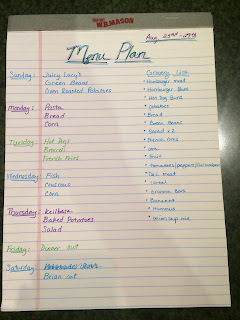 W.B. MASON
Aug 23rd - 29th
Menu Plan
Sunday: Juicy Lucy's
Green Beans
Oven Roasted Potatoes
Monday: Pasta
Bread
Corn
Tuesday: Hot Dogs
Broccoli
French Fries
Wednesday: Fish
Couscous
Corn
Thursday: Keilbasa
Baked Potatoes
Salad
Friday: Dinner out
Saturday:
Brian out
Grocery List
Hamburger meat
Hamburger Buns
Hot Dog Buns
potatoes
Bread
Green Beans
Salad x2
French Fries
corn
Fruit
tomatoes/peppers/cucumbers
Deli meat
cereal
Granola Bars
Bananas
Hummus